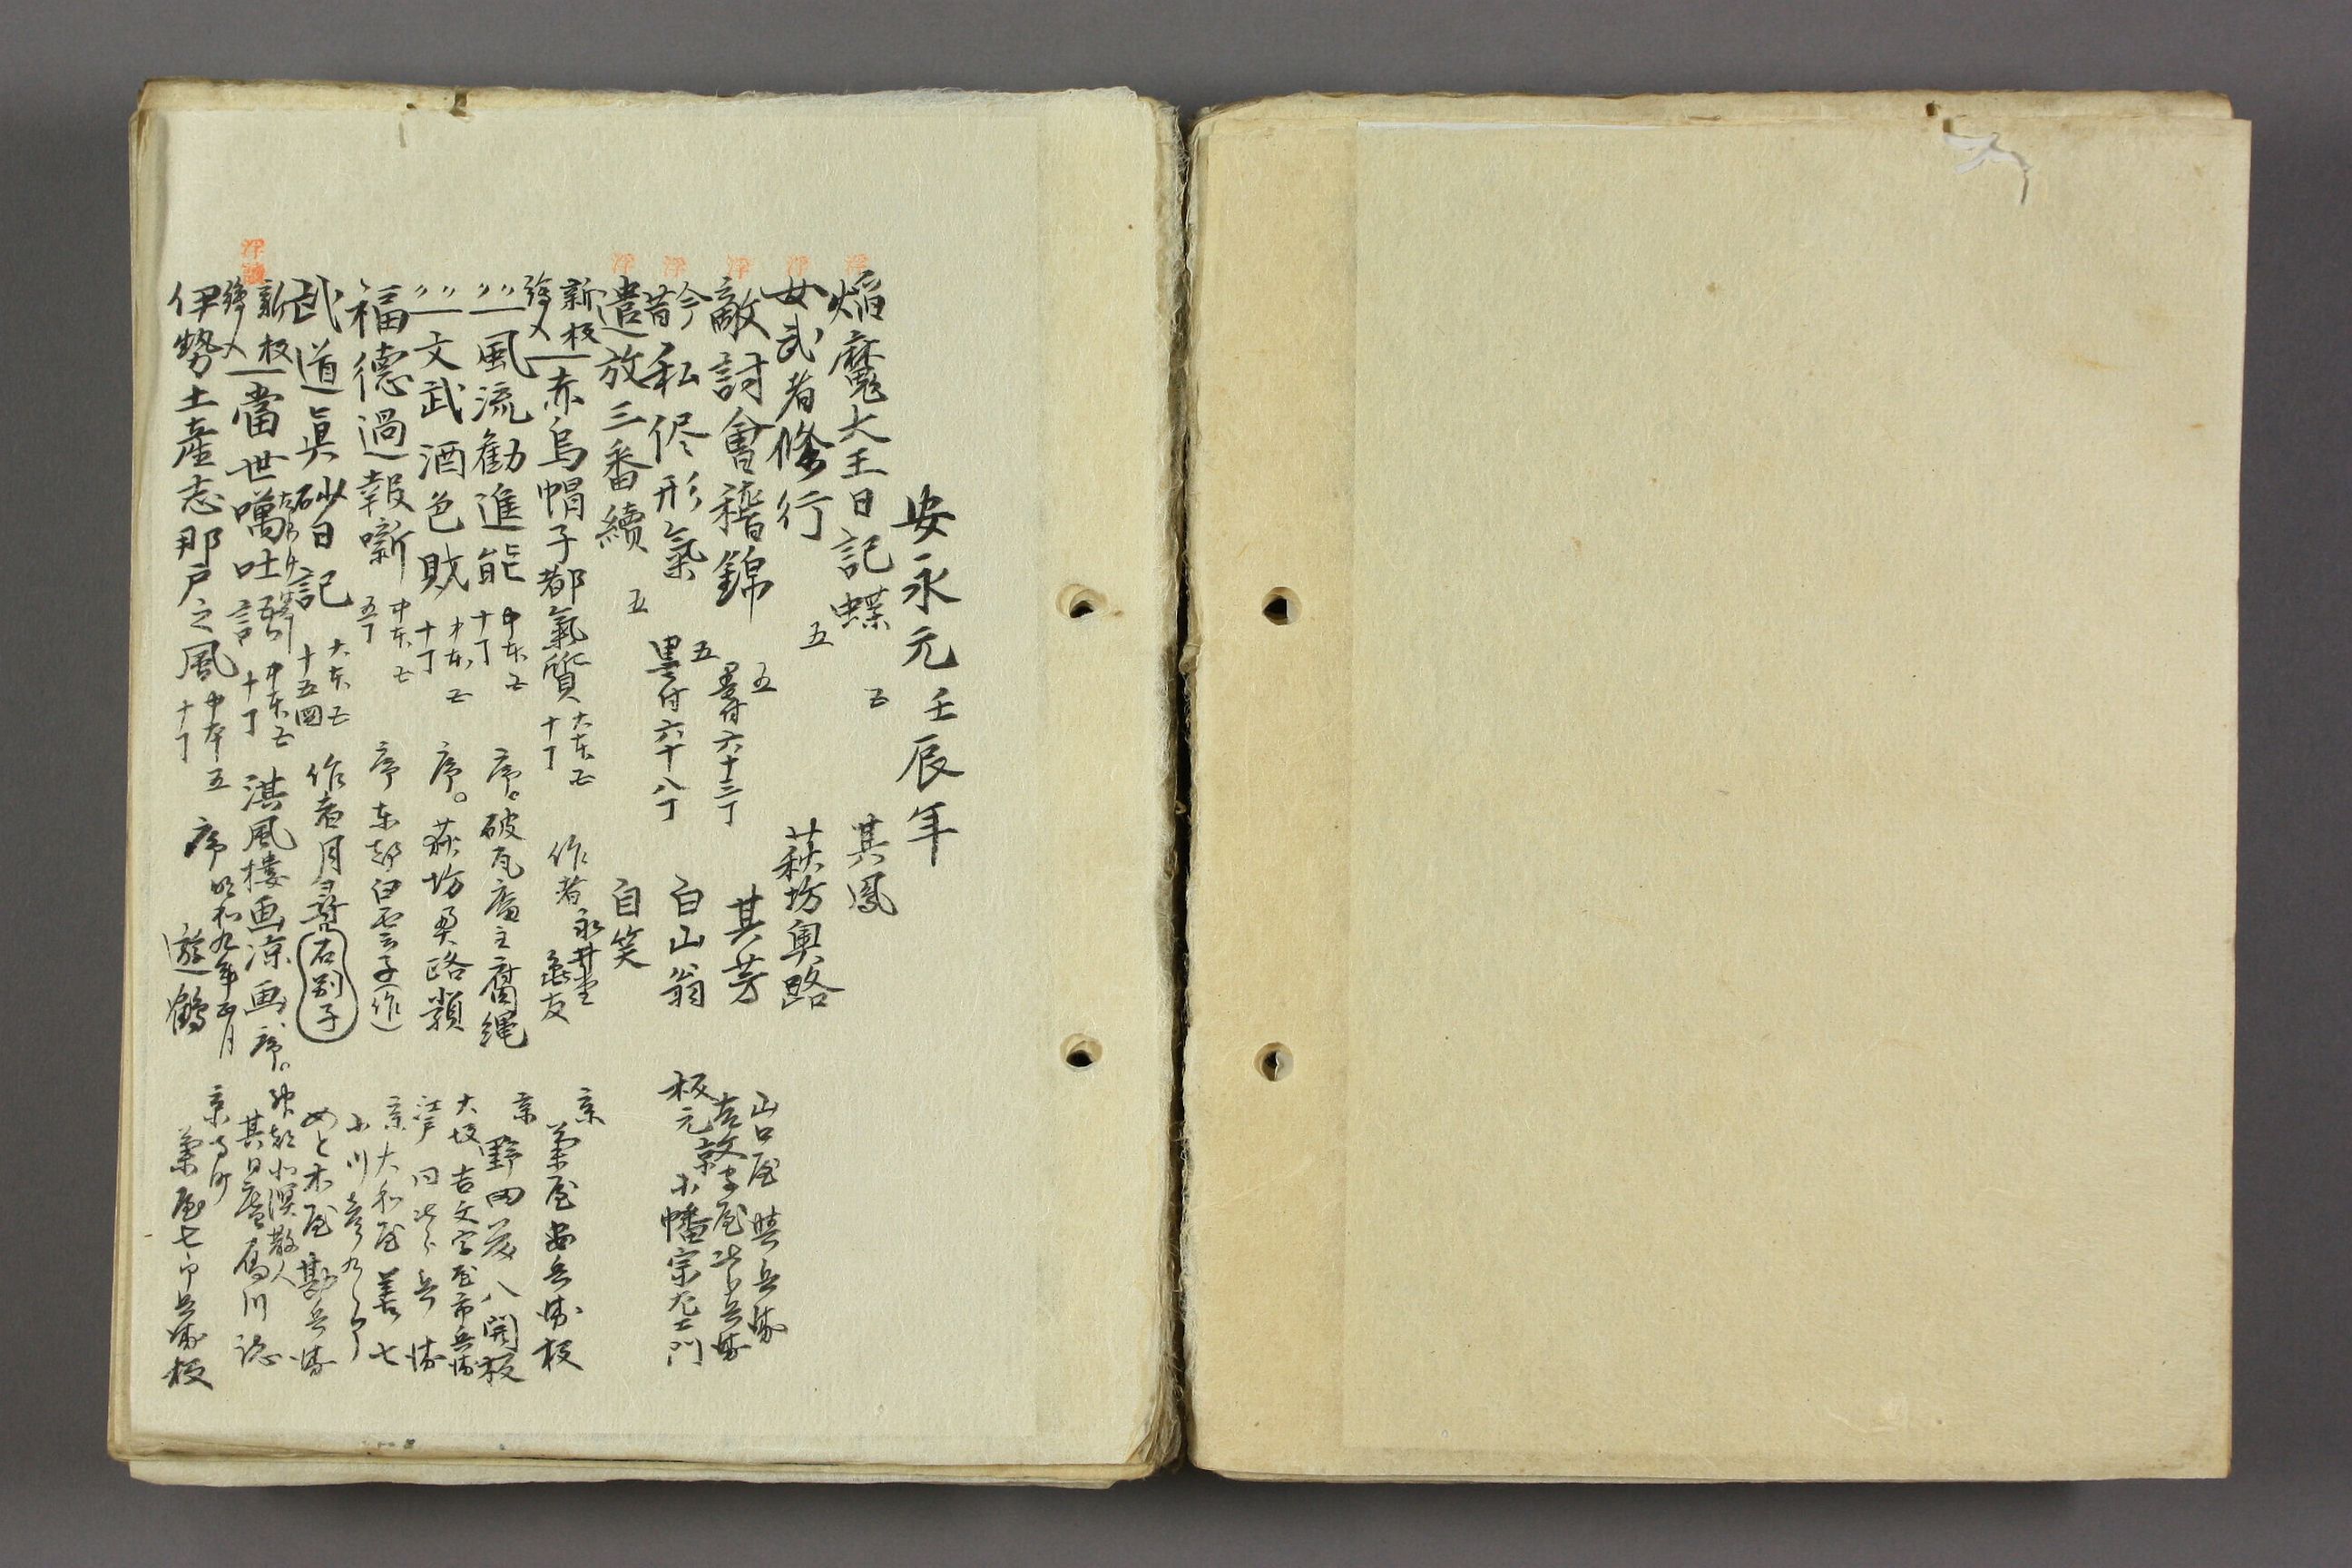 安永元壬辰年
焰魔大王日記蝶 五 其鳳
女武者修行 五 萩坊奥路
山口屋與兵衛
敵討會稽錦 五 墨付六十三丁 其芳
吉文字屋次郎兵衛
今昔私侭形氣 五 墨付六十八丁 白山翁 板元 京 小幡宗左エ門
遣放三番續 五 自笑
新板繪入 赤烏帽子都氣質 大本五 十丁 作者 永井堂亀友 京 菊屋安兵衛板
〃〃 風流勧進能 中本五 十丁 序。破瓦庵主腐縄 京 野田藤八開板
〃〃 文武酒色財 中本五 十丁 序。萩坊奥路類 大坂 吉文字屋市兵衛
江戸 同 次郎兵衛
福徳過報噺 中本五 五丁 序 東都白雲子(作) 京 大和屋善七
小川彦九郎
武道真砂日記 大本五 十五四 作者月尋 石別子 めと木屋勘兵衛
新板繪入 當世噂吐語 中本五 十丁 淇風樓画凉画 序。
其日庵
伊勢土産志那戸之風 中本五 十丁 序 明和九年正月 遊鶴 京寺町 菊屋七郎兵衛板
浮
浮
浮
浮
浮
浮